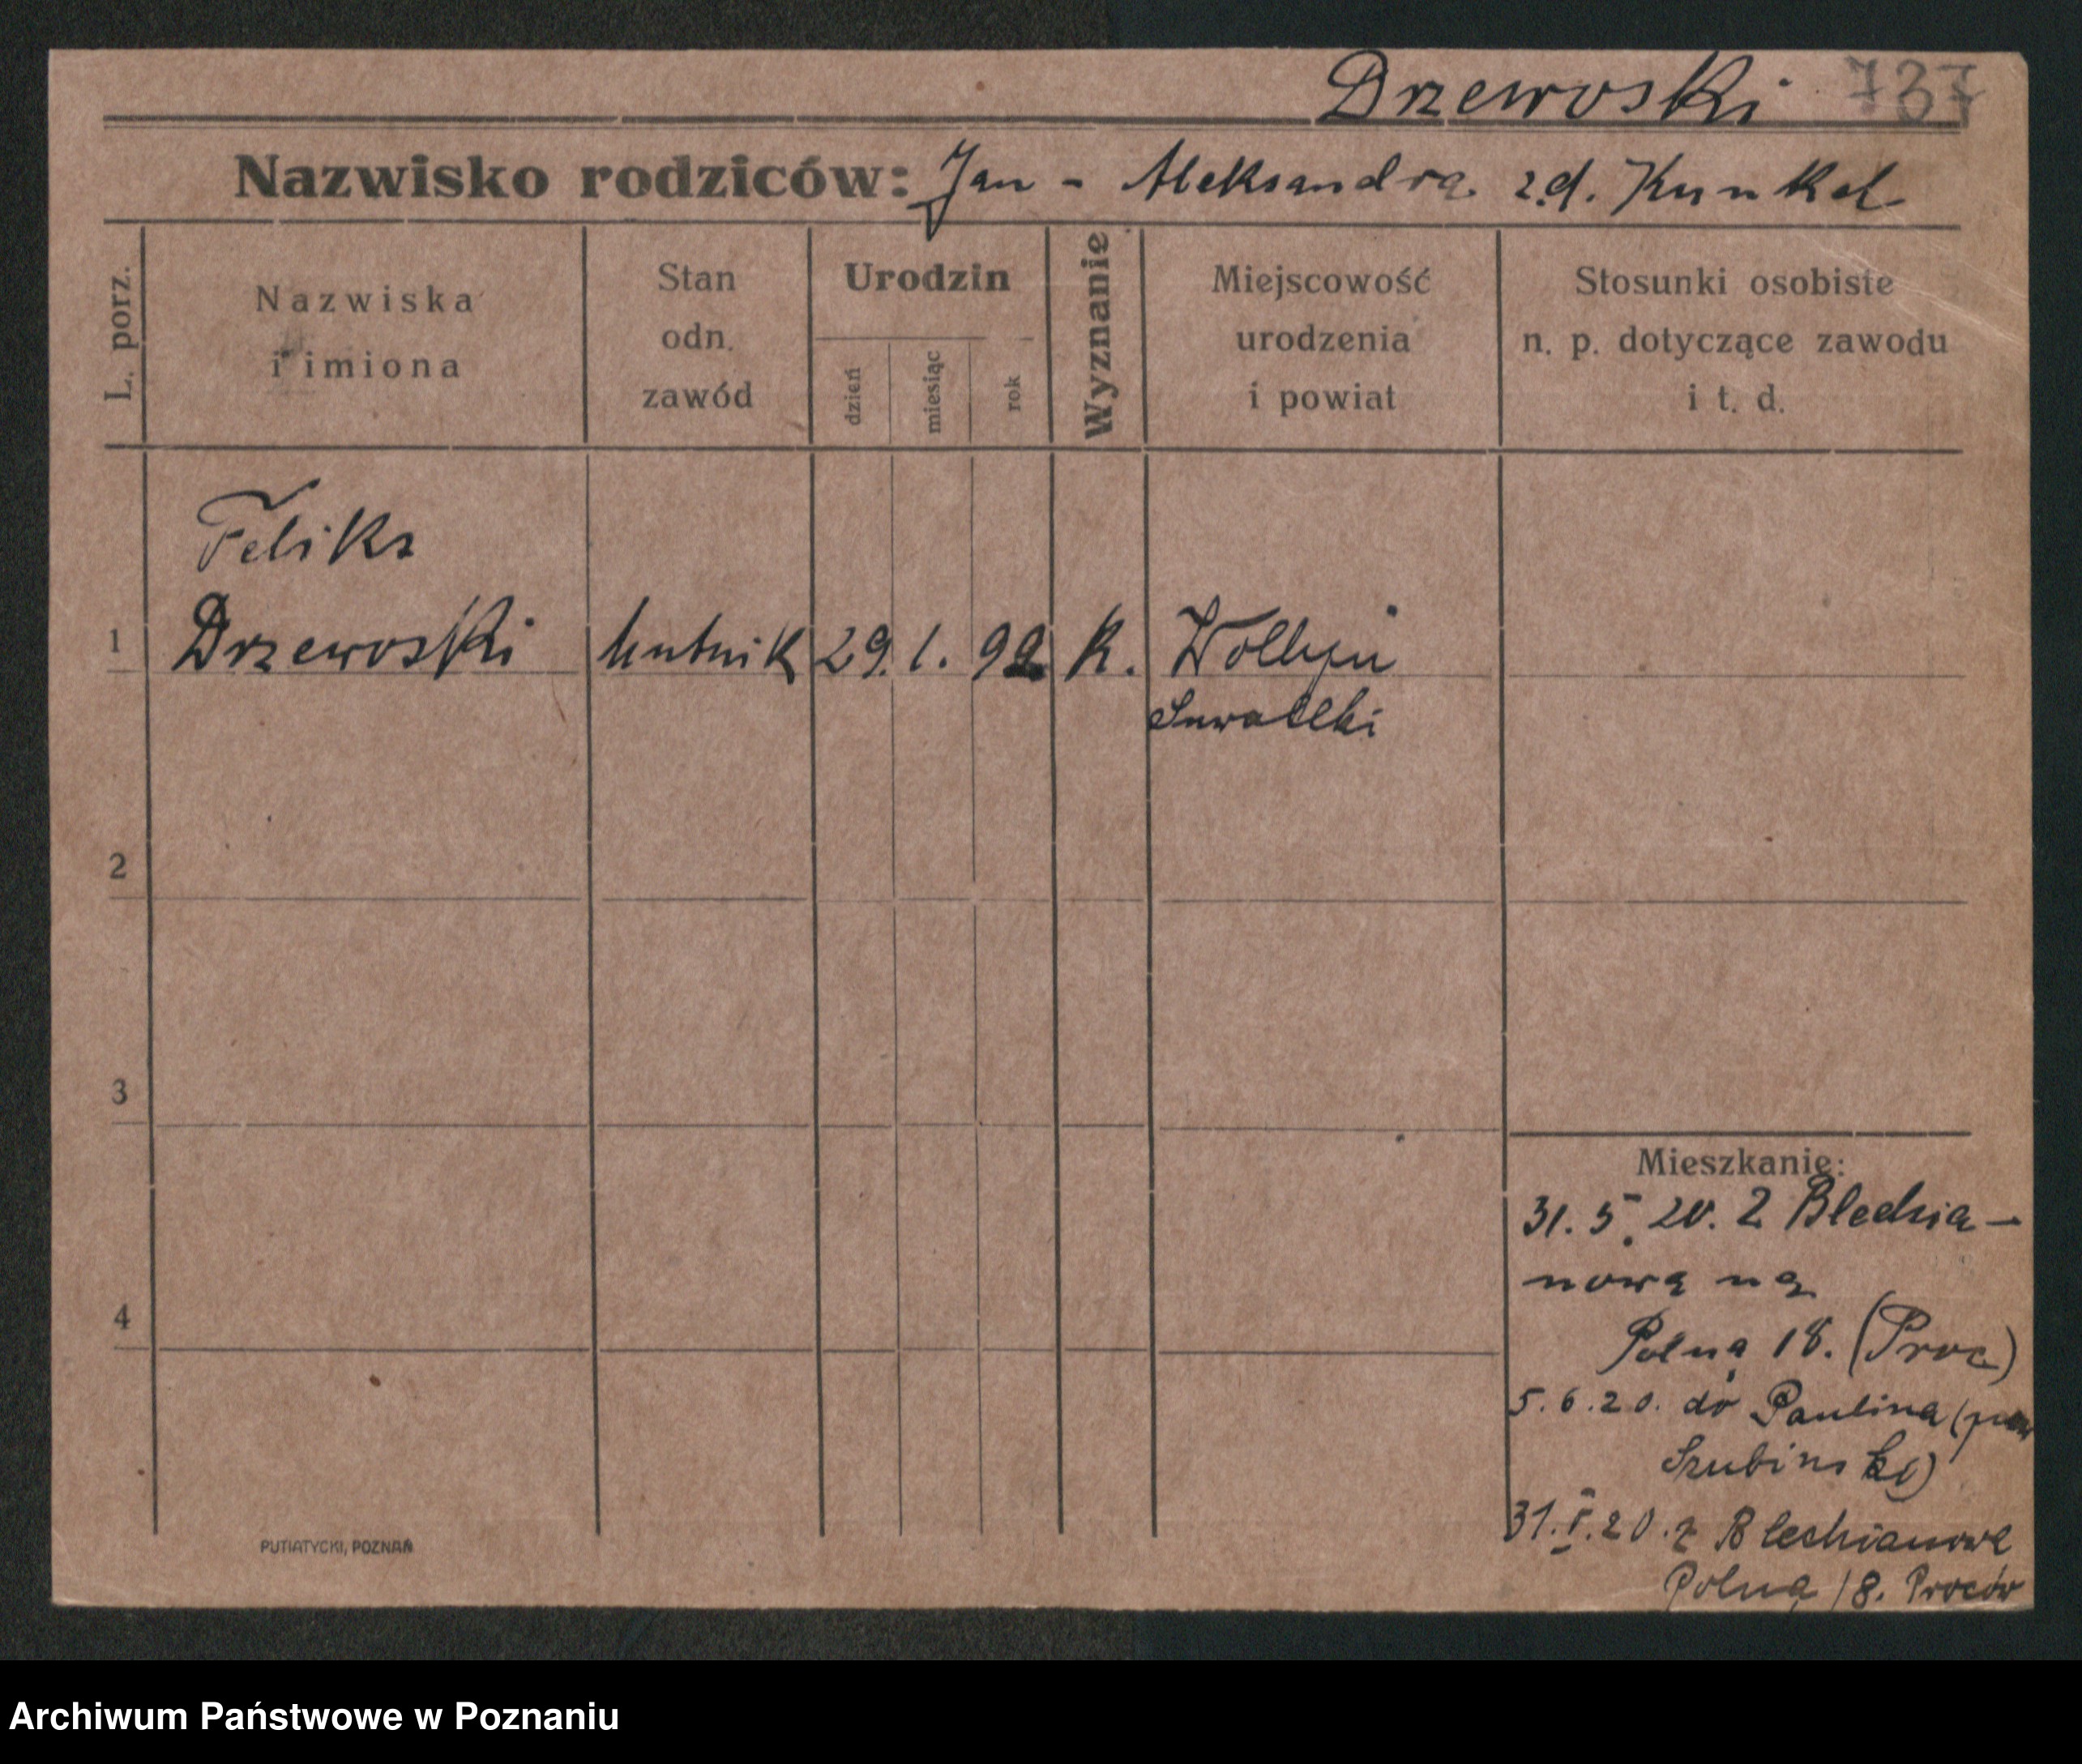 Drzewoski 737
Nazwisko rodziców: Jan - Aleksandra z.d. Kunkel
L. porz.
Nazwiska
i imiona
Stan
odn.
zawód
Urodzin
dzień
miesiąc
rok
Wyznanie
Miejscowość
urodzenia
i powiat
Stosunki osobiste
n. p. dotyczące zawodu
i t. d.
Feliks
1 Drzewoski hutnik 29. 1. 92 K.
Suwałki
2
3
4
Mieszkanie:
31. 5. 20. z
nową na
Polną 18. (Proc)
5. 6. 20. do Paulina (pow
Szubinski)
31.V.20. z
Polna 18. Proców
PUTIATYCKI, POZNAŃ
Archiwum Państwowe w Poznaniu